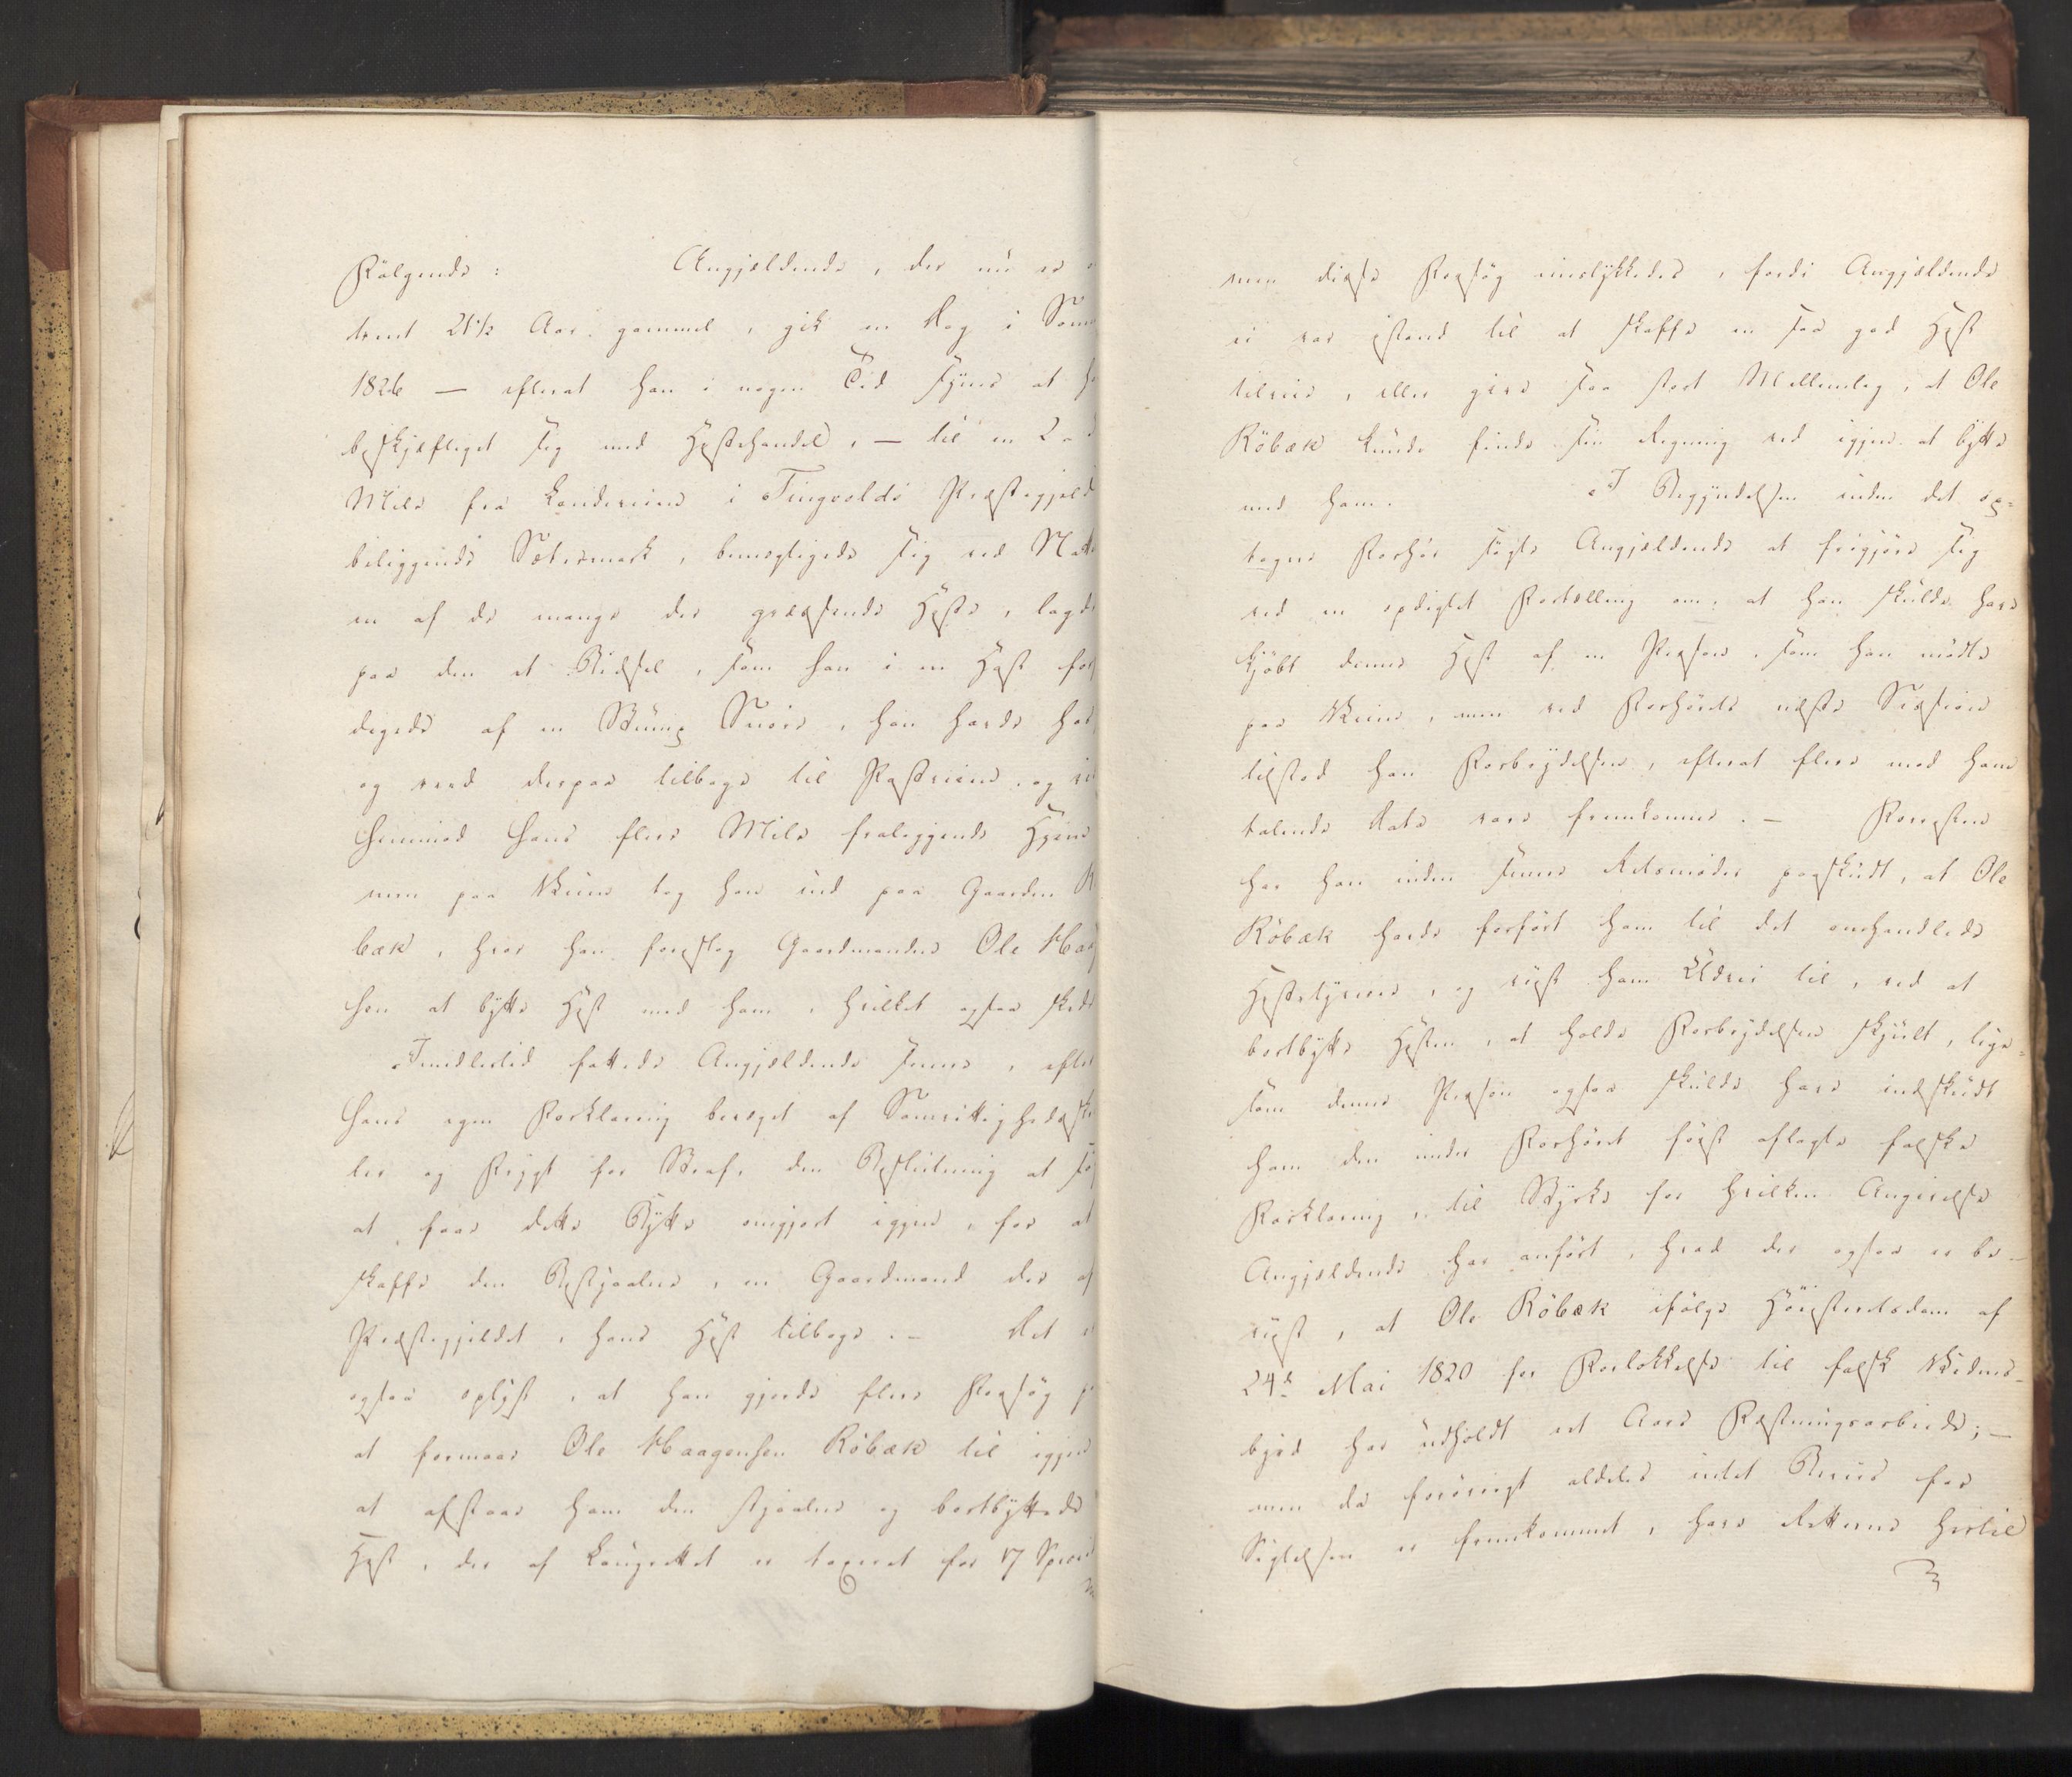 Følgende: Angjeldende, der nu er o
trent 21½ Aar gammel, gik en Dag i Som
1826 — efterat han i nogen Tid synes at h
beskjæftiget sig med Hestehandel, — til en 2 a
Miil fra Landeveien i Tingvolds Præstegjeld
beliggende Sætermark, bemægtigede sig ved Natte
en af de mange der græssende Heste, lagde
paa den et Bidsel, som han i en Hast for
digede af en Stump Snøre, han havde hos
og reed derpaa tilbage til Postveien og vi
henimod hans flere Mile fraliggende Hjem
men paa Veien tog han ind paa Gaarden R
bæk, hvor han foreslog Gaardmanden Ole Haa
sen at bytte Hest med ham, hvilket ogsaa skede
Imidlertid fattede Angjeldende snart, efter
hans egen Forklaring bevæget af Samvittighedsskr
ler og Frygt for Straf, den Beslutning at sø
at faae dette Bytte omgjort igjen, for at
skaffe den Bestjaalne, en Gaardmand der af
Præstegjeldet, hans Hest tilbage. — Det er
ogsaa oplyst, at han gjorde flere Forsøg p
at formaae Ole Haagensen Röbæk til igjen
at afstaae ham den stjaalne og bortbyttede
Hest, der af Laugrettet er taxeret for 17 Specie
men disse Forsøg mislykkedes, fordi Angjeldende
ei var istand til at skaffe en saa god Hest
tilveie, eller give saa stort Mellemlag, at Ole
Röbæk kunde finde sin Regning ved igjen at bytte
med ham. I Begyndelsen under det op=
tagne Forhør søgte Angjeldende at frigjøre sig
ved en opdigtet Fortælling om, at han skulde have
kjöbt denne Hest af en Person, som han mødte
paa Veien, men ved Forhørets næste Session
tilstod han Forbrydelsen, efterat flere mod ham
talende Data vare fremkomne. — Forresten
har han under senere Retsmøder paaskudt, at Ole
Röbæk havde forført ham til det omhandlede
Hestetyverie, og viist ham Udvei til, ved at
bortbytte Hesten, at holde Forbrydelsen skjult, lige=
som denne Person ogsaa skulde have indskudt
ham den under Forhøret først aflagte falske
Forklaring, til Styrke for hvilken Angivelse
Angjeldende har anført, hvad der ogsaa er be—
viist, at Ole Röbæk ifølge Höiesteretsdom af
24de Mai 1820 for Forlokkelse til falsk Vidnes—
byrd har udholdt et Aars Fæstningsarbeide; —
men da forøvrigt aldeles intet Beviis for
Sigtelsen er fremkommet, have Retterne hertil